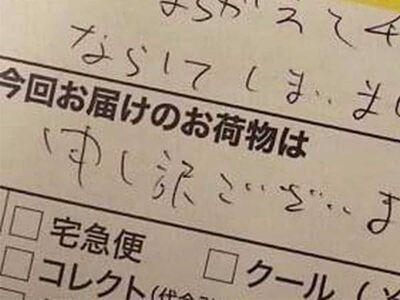 まちがえてチ
ならしてしまいまし
今回お届けのお荷物は
申し訳ございま
宅急便
クール(
コレクト(代金